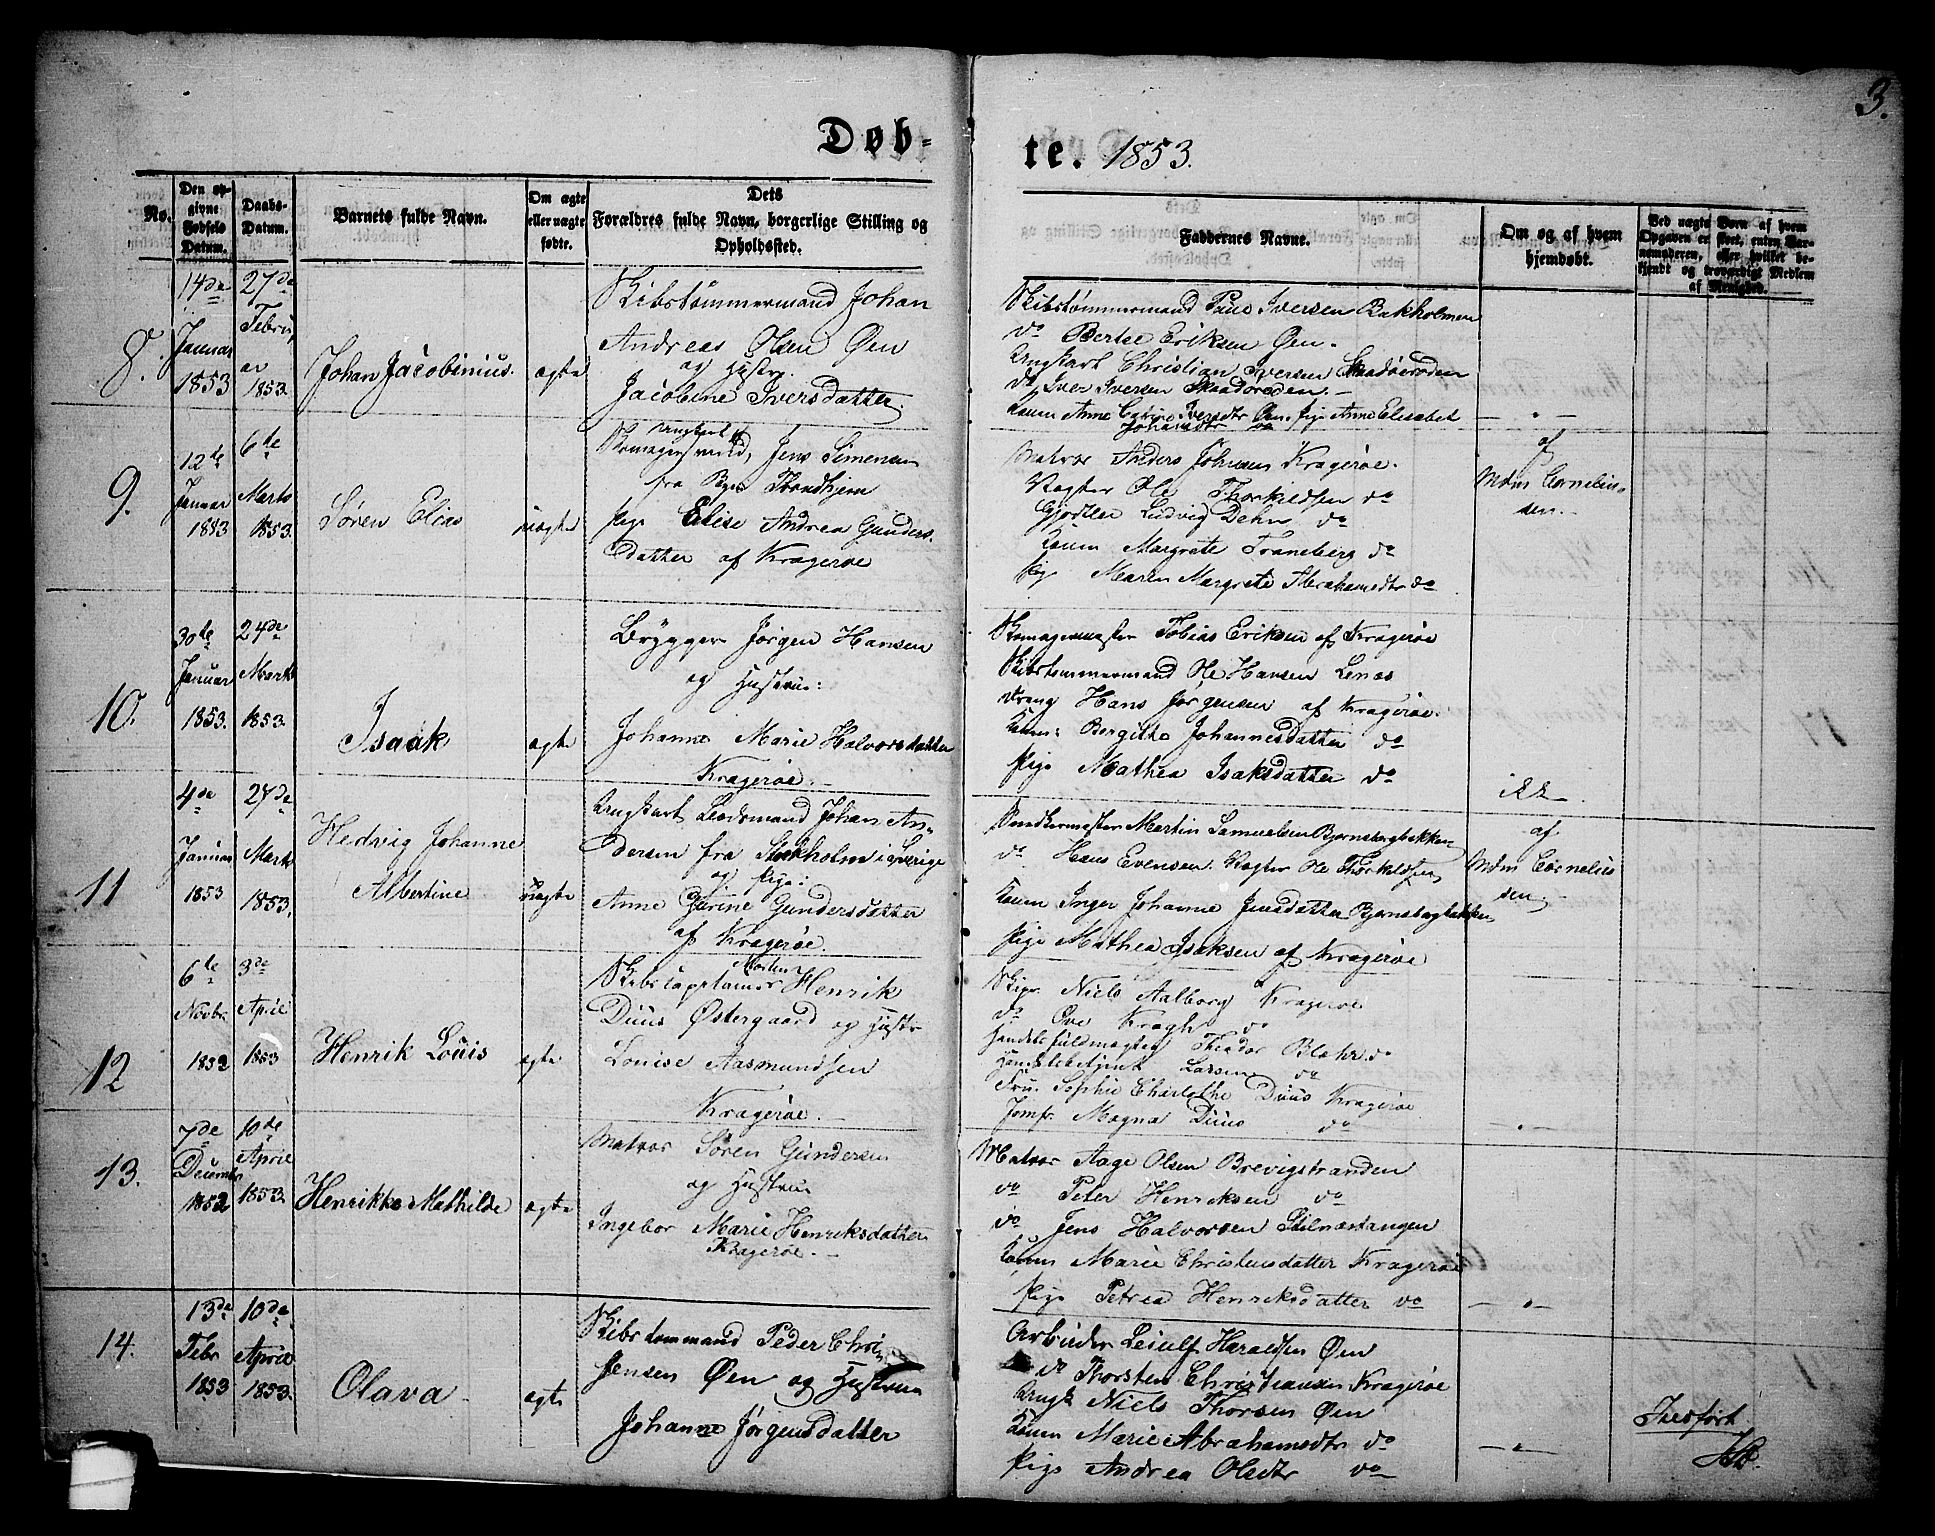 3.
Døb- te. 1853.
No.
Den opgivne Fødsels Datum.
Daabs-Datum.
Barnets fulde Navn.
Om ægte eller uægte fødte.
Dets Forældres fulde Navn, borgerlige Stilling og Opholdssted.
Faddernes Navne.
Om og af hvem hjemdøbt.
Ved uægte Børn af hvem Opgaven er skeet, enten Barnemoderen, eller hvilket bekjendt og troværdigt Medlem af Menighed.
8.
14de Januar 1853
27de Februar 1853.
Johan Jacobinius.
ægte
Skibstømmermand Johan
Andreas Olsen Øen
og Hustru
Jacobine Iversdatter
Skibstømmermand Paul Iversen
do Bertel Eriksen Øen.
Ungkarl Christian Iversen
do Iver Iversen
Konen Anne Iversdtr Øen, Pige Anne Elisabet
Johansdtr do
— " —
9.
12te Januar 1853
6te Marts 1853.
Søren Elias
uægte
Ungkarl
Skomagersvend, Jens Simensen
fra Byen Trondhjem
Pige Elise Andrea Gunders-
datter af Kragerøe
Matros Anders Johnsen Kragerøe.
Vægter Ole Thorkildsen do
Gjørtler Ludvig Dehn do
Konen Margrete Traneberg do
Pige Maren Margrete Abrahamsdtr do
af
Mdm Cornelius-
sen.
10.
30te Januar 1853.
24de Marts 1853.
Isaak
ægte
Brygger Jørgen Hansen
og Hustrue:
Johanne Marie Halvorsdatter
Kragerøe.
Skomagermester Tobias Eriksen af Kragerøe
Skibstømmermand Ole Hansen
Dreng Hans Jørgensen af Kragerøe.
Konen: Bergitte Johannesdatter do
Pige Mathea Isaksdatter do
ikke
11
4de Januar 1853
27de Marts 1853.
Hedvig Johanne
Albertine
uægte
Ungkarl Lodsmand Johan An-
dersen fra Stokholm i Sverige
og Pige:
Anne Gurine Gundersdatter
af Kragerøe.
Snedkermester Martin Samuelsen Bjørnsbergbakken
do Hans Evensen. Vægter Ole Thorkildsen
Konen Inger Johanne Jensdatter Bjørnsbergbakken
Pige Mathea Isaksen af Kragerøe
af
Mdm Cornelius
sen.
12
6te Novbr 1852
3de April 1853
Henrik Louis
ægte
Morten
Skibscaptainer Henrik
Duus Østergaard og Hustr
Louise Aasmundsen
Kragerøe.
Skipr Niels Aalborg Kragerøe
do Ove Kragh do
Handelsfuldmægtig Theodor Blæhr do
Handelsbetjent Larsen do
Fru. Sophie Charlothe Duus Kragerøe
Jomfr. Magna Duus do
— " —
13.
7de Decembr 1852
10de April 1853.
Henrikke Mathilde
ægte
Matros Søren Gundersen
og Hustrue
Ingebor Marie Henriksdatter
Kragerøe.
Matros Aage Olsen Brevigstranden
do Peter Henriksen do
do Jens Halvorsen Stilnæstangen
Konen Marie Christensdatter Kragerøe
Pige Petrea Henriksdatter do
— " —
14.
13de Febr 1853
10de April 1853.
Olava
ægte
Skibstømmand Peder Chri-
Jensen Øen og Hustrue
Johanne Jørgensdatter
Arbeider Leiulf Haraldsen Øen
do Thorsten Christiansen Kragerøe
Ungk Niels Thorsen Øen
Konen Marie Abrahamsdtr do
Pige Andrea Olsdtr do
— " —